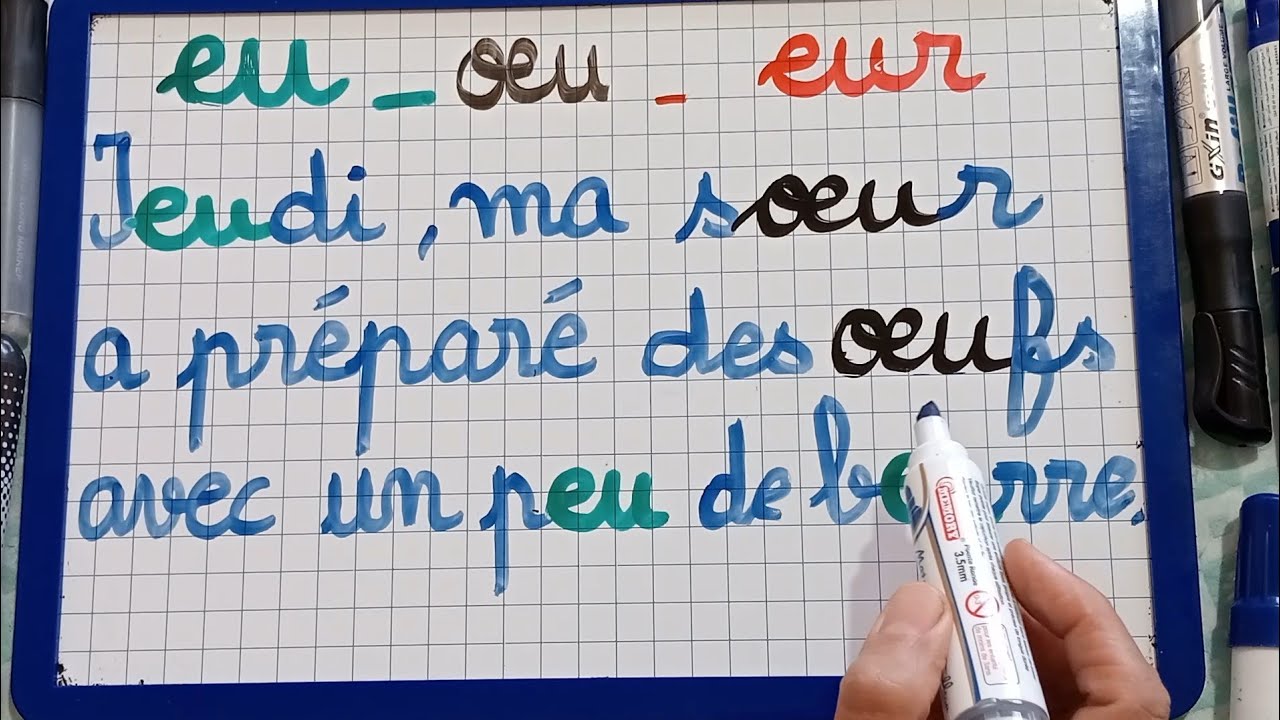 eu - œu - eur
Jeudi, ma sœur
a préparé des œufs
avec un peu de
GXin
3.5mm